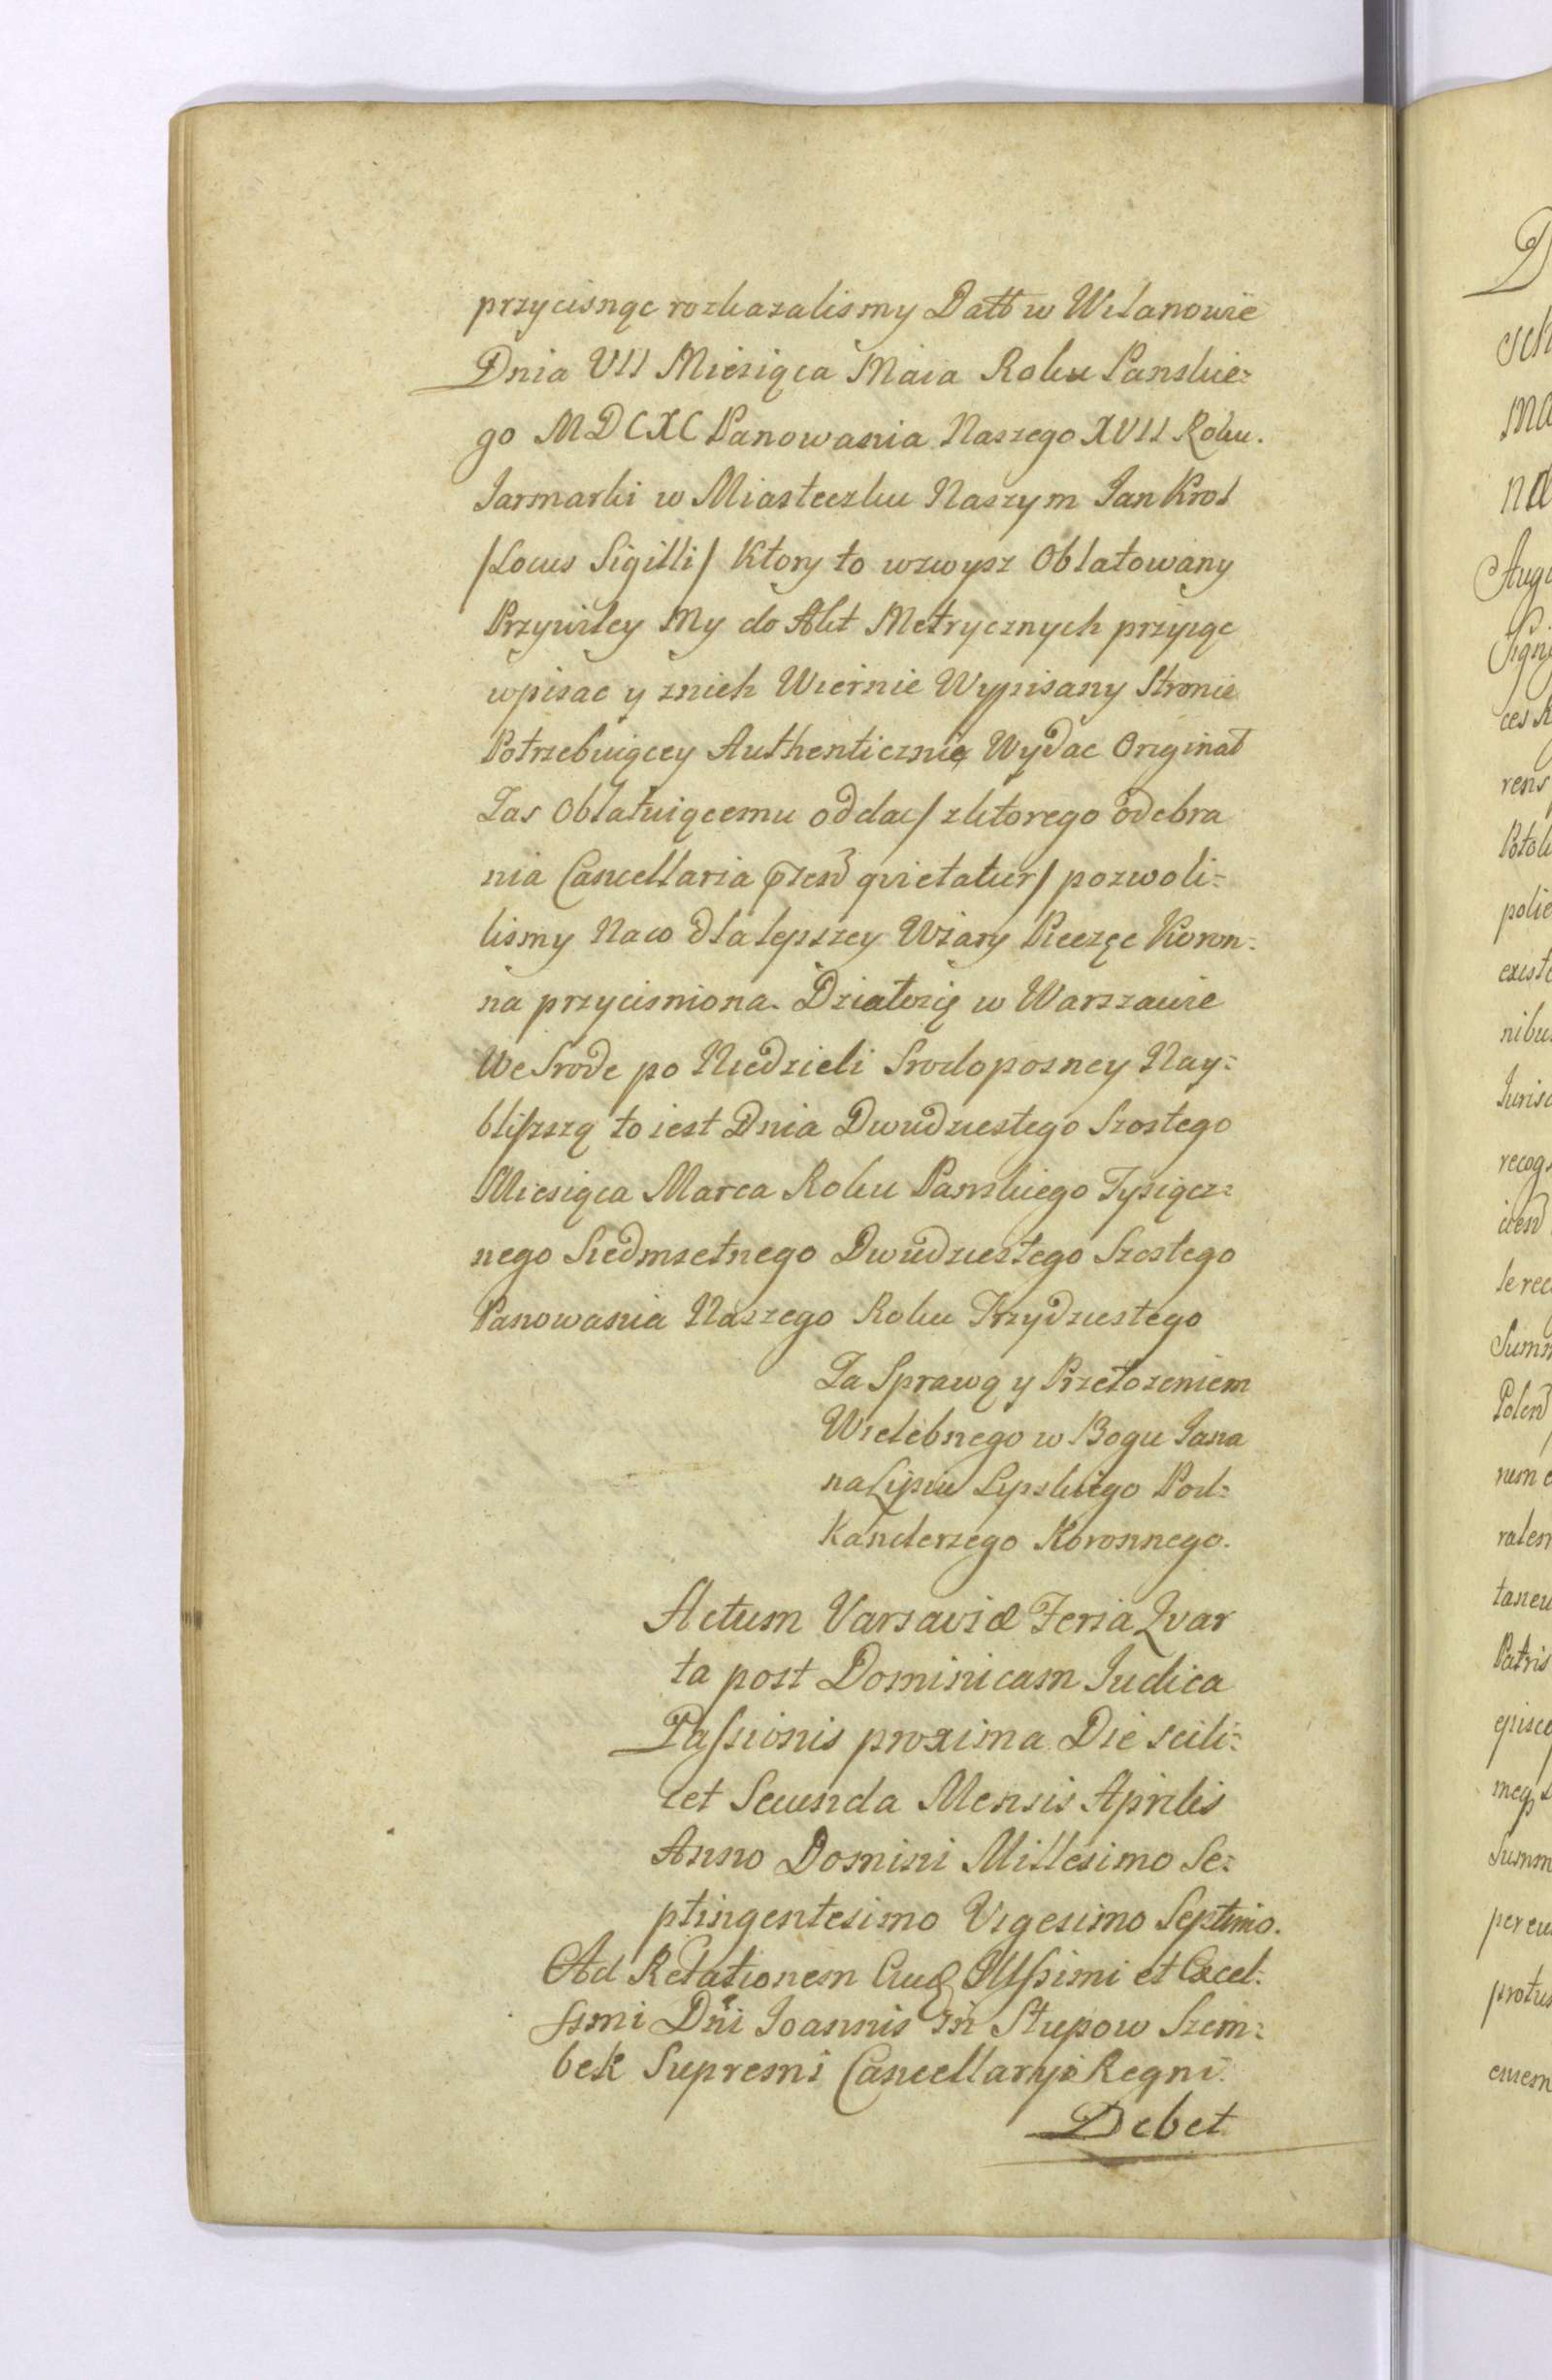 przycisnąc rozkazalismy Datt w Wilanowie
Dnia VII Miesiąca Maia Roku Panskie=
go MDCXC Panowania Naszego XVII Roku.
Jarmarki w Miasteczku Naszym Jan Krol
/Locus Sigilli/ Ktory to wzwysz Oblatowany
Przywiley My do Akt Metrycznych przyiąc
wpisac y znich Wiernie Wypisany Stronie
Potrzebuiącey Authentycznie Wydac Originał
Zas Oblatuiącemu oddac/ zktorego odebra
nia Cancellaria quietatur/ pozwoli=
lismy Naco dla lepszey Wiary Pieczęc Koron=
na przycisniona. Działosię w Warszawie
We Srode po Niedzieli Srodoposney Nay=
bliższą to iest Dnia Dwudziestego Szostego
Miesiąca Marca Roku Panskiego Tysiącz=
nego Siedmsetnego Dwudziestego Szostego
Panowania Naszego Roku Trzydziestego
Za Sprawą y Przełozeniem
Wielebnego w Bogu Jana
na Lipiu Lipskiego Pod=
kanclerzego Koronnego.
Actum Varsaviæ Feria Qvar
ta post Dominicam Judica
Passionis proxima Die scili=
cet Secunda Mensis Aprilis
Anno Domini Millesimo Se=
ptingentesimo Vigesimo Septimo.
Ad Relationem Illssimi et Excel=
ssmi Dni Joannis in Słupow Szem=
bek Supremi Cancellarij Regni.
Debet